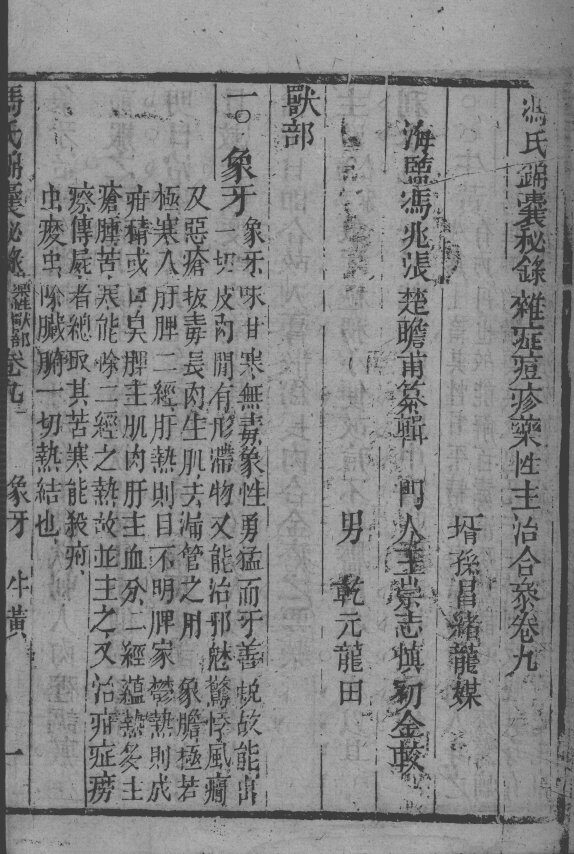 馮氏錦囊秘錄雜症痘疹藥性主治合參卷九
壻孫昌緒龍媒
海鹽馮兆張楚瞻甫纂輯 門人王崇志慎初仝較
男 乾元龍田
獸部
一○象牙 象牙味甘寒無毒象性勇猛而牙善脫故能出
一切皮肉間有形滯物又能治邪魅驚悸風癇
及惡瘡拔毒長肉生肌去漏管之用 象膽極苦
極寒入肝脾二經肝熱則目不明脾家鬱熱則成
疳積或口臭脾主肌肉肝主血分二經蘊熱多主
瘡腫苦寒能除二經之熱故並主之又治疳症癆
瘵傳屍者總取其苦寒能殺疳
虫瘵虫除臟腑一切熱結也
馮氏錦囊秘錄 雜症獸部卷九 象牙 牛黃 一